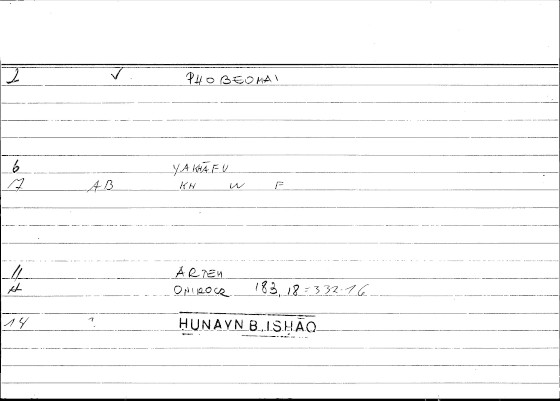 2 ✓ PHOBEOMAI
6 YAKHĀFU
7 AB KH W F
11 ARTEM
ONIROCR 183, 18 = 332.16
14 ? HUNAYN B. ISHĀQ